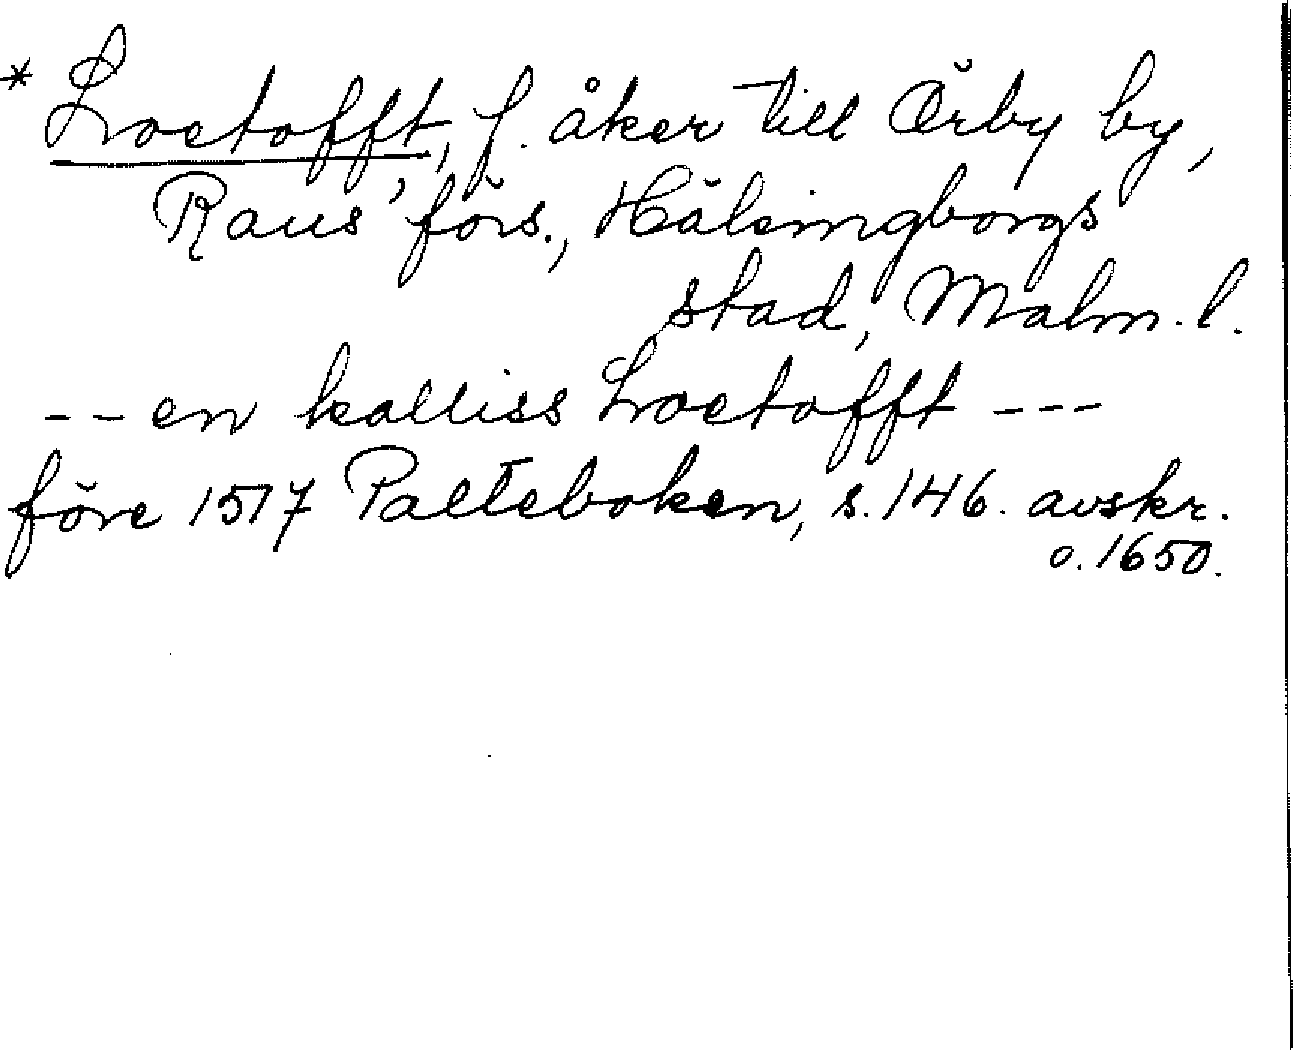 * Lroetofft, f. åker till Örby by,
Raus' förs., Hälsingborgs
stad, Malm. l.
-- en kalliss Lroetofft ---
före 1517 Palteboken, s. 146. avskr.
o. 1650.